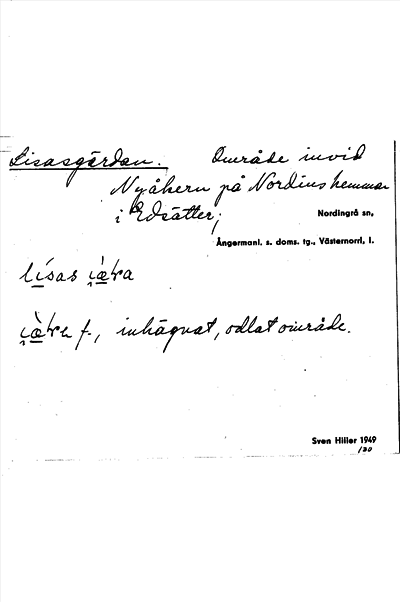 Lisasgärdan. Område invid
Nyåkern på Nordins hemman
i Edsätter;
Nordingrå sn,
Ångermanl. s. doms. tg., Västernorrl. l.
lísas
f., inhägnat, odlat område.
Sven Hiller 1949
/30